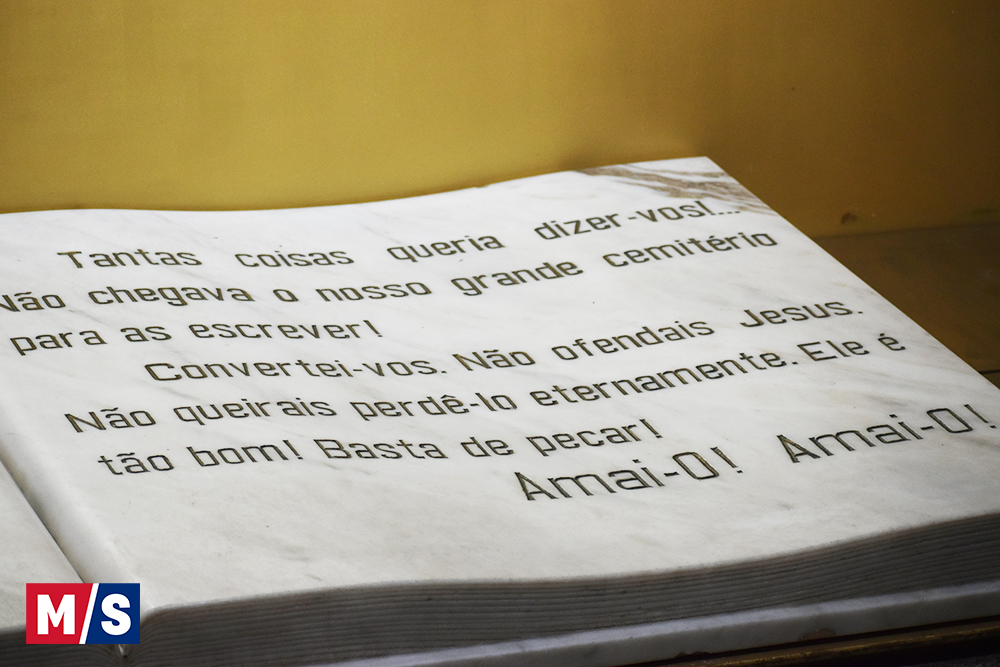 Tantas coisas queria dizer-vos!...
Não chegava o nosso grande cemitério
para as escrever!
Convertei-vos. Não ofendais Jesus.
Não queirais perdê-lo eternamente. Ele é
tão bom! Basta de pecar!
Amai-O! Amai-O!
M/S